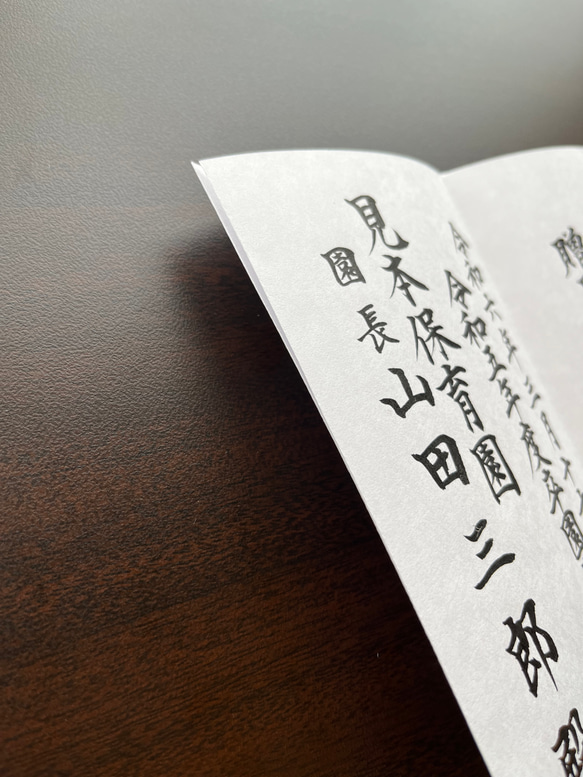 贈
令和六年三月十
令和五年度卒園
見本保育園
園長 山田三郎 殿